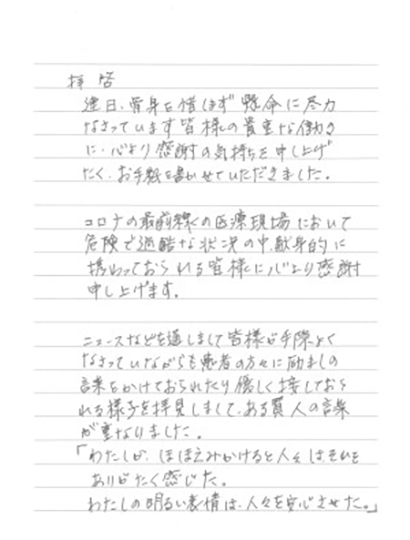 拝啓
連日、骨身を惜しまず懸命に尽力
なさっています皆様の貴重な働き
に、心より感謝の気持ちを申し上げ
たく、お手紙を書かせていただきました。
コロナの最前線の医療現場において
危険で過酷な状況の中、献身的に
携わっておられる皆様に心より感謝
申し上げます。
ニュースなどを通しまして皆様が手際よく
なさっていながらも患者の方々に励ましの
言葉をかけておられたり優しく接しておら
れる様子を拝見しまして、ある賢人の言葉
が重なりました。
「わたしが、ほほえみかけると人々はそれを
ありがたく感じた。
わたしの明るい表情は、人々を安心させた。」